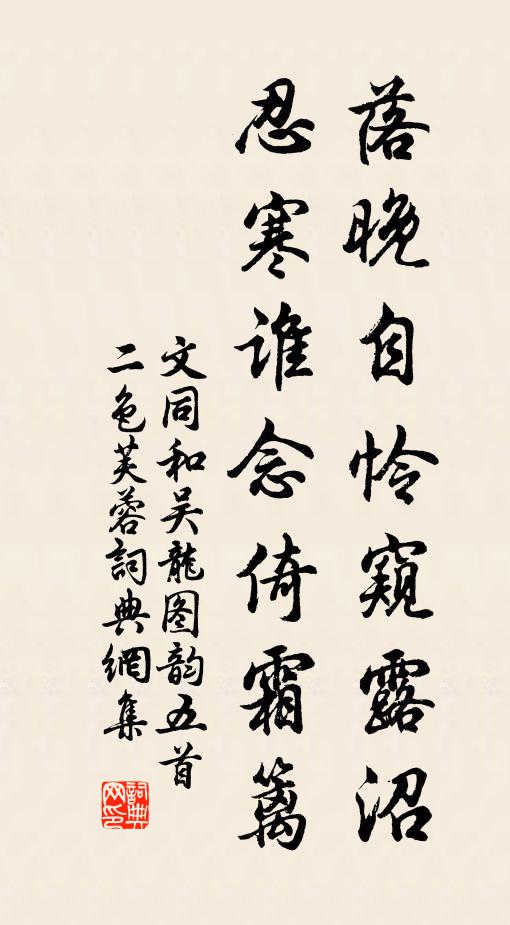 落晚自怜窺露沼
忍寒谁念倚霜籬
文同和吴龍图韵五首
二色芙蓉詞典網集
詞典网印